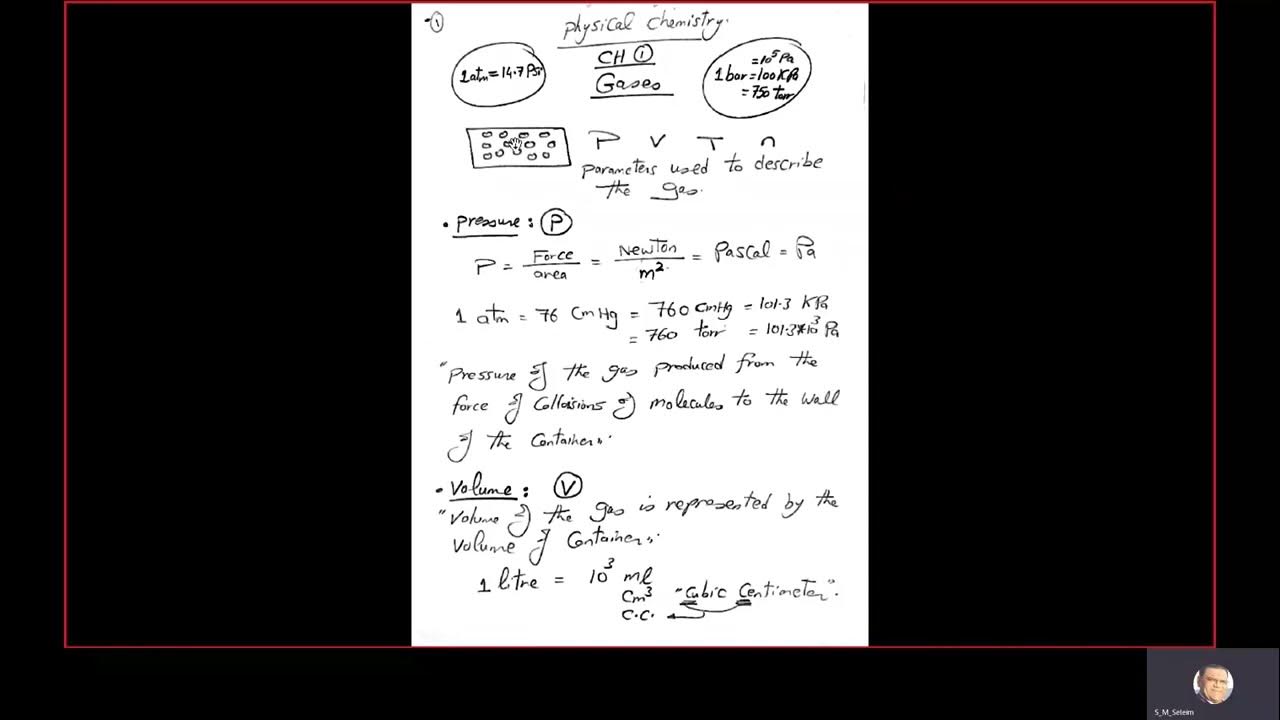 ①
physical chemistry.
CH ①
Gases
1 atm = 14.7 Psi
= 10⁵ Pa
1 bar = 100 KPa
= 750 torr
P V T n
parameters used to describe
the gas.
• Pressure : Ⓟ
P = Force/area = Newton/m² = Pascal = Pa
1 atm = 76 CmHg = 760 CmHg = 101.3 KPa
= 760 torr = 101.3*10³ Pa
"Pressure of the gas produced from the
force of Collaisions of molecules to the wall
of the Container".
• Volume : Ⓥ
"Volume of the gas is represented by the
Volume of Container".
1 litre = 10³ ml
Cm³ "Cubic Centimeter".
C.C.
S_M_Seteim